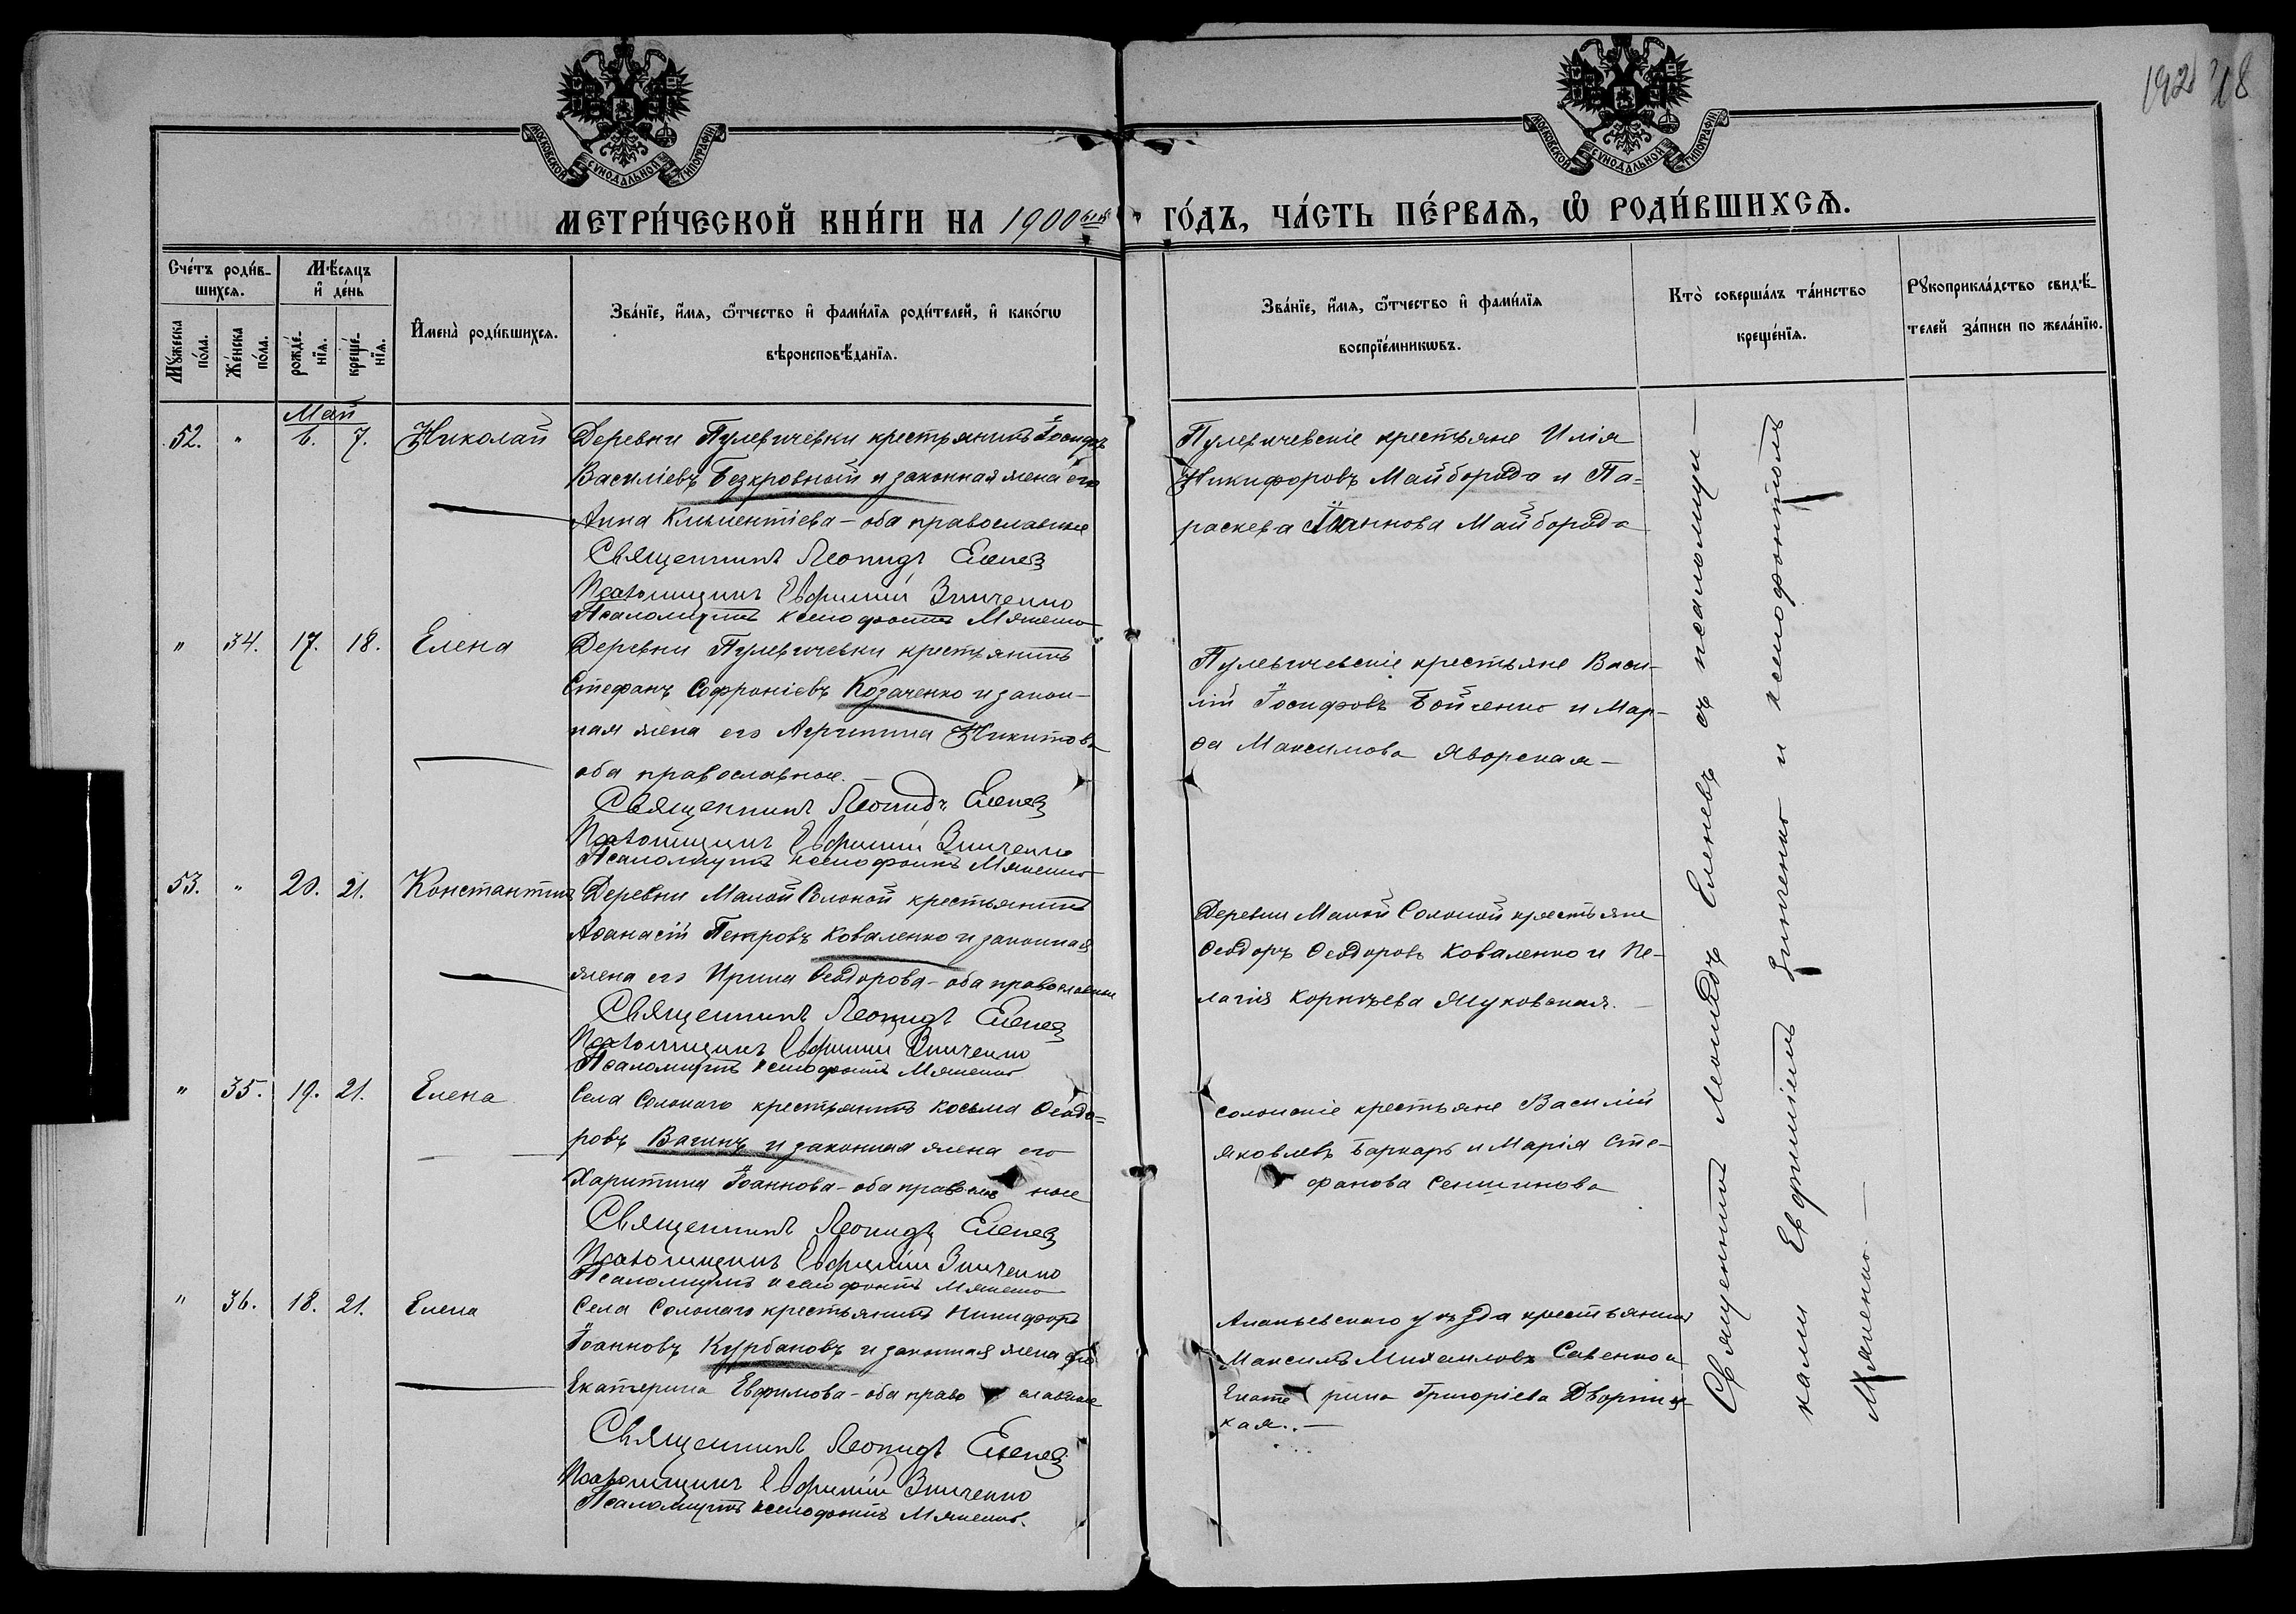 192 18
МОСКОВСКОЙ СѴНОДАЛЬНОЙ ТИПОГРАФІИ
МОСКОВСКОЙ СѴНОДАЛЬНОЙ ТИПОГРАФІИ
МЕТРИ́ЧЕСКОЙ КНИ́ГИ НА 1900 ГО́ДЪ, ЧА́СТЬ ПЕ́РВАѦ, Ѡ҆ РОДИ́ВШИХСѦ.
Сче́тъ роди́в-
шихсѧ.
Мꙋ́жеска по́ла.
Же́нска по́ла.
Мѣ́сѧцъ
и҆ де́нь
рожде́-
нїѧ.
креще́-
нїѧ.
И҆мена̀ роди́вшихсѧ.
Зва́нїе, и҆́мѧ, ѻ҆́тчество и҆ фами́лїѧ роди́телей, и҆ како́гѡ
вѣроисповѣ́данїѧ.
Зва́нїе, и҆́мѧ, ѻ҆́тчество и҆ фами́лїѧ
воспрїе́мникѡвъ.
Кто̀ соверша́лъ та́инство
креще́нїѧ.
Рꙋкоприкла́дство свидѣ́-
телей за́писи по жела́нїю.
Май
52. " 6. 7. Николай
Деревни Пулевичевки крестьянинъ Іосифъ
Василіевъ Безкровный и законная жена его
Анна Климентіева – оба православные
Священникъ Леонидъ Еленев
Псаломщикъ Евфимій Зинченко
Псаломщикъ Ксенофонтъ Мяненко
Пулевичевскіе крестьяне Илія
Никифоровъ Майборода и Па-
раскева Іоаннова Майборода
" 34. 17. 18. Елена
Деревни Пулевичевки крестьянинъ
Стефанъ Софроніевъ Козаченко и закон-
ная жена его Агриппина Никитова
оба православные. –
Священникъ Леонидъ Еленев
Псаломщикъ Евфимій Зинченко
Псаломщикъ Ксенофонтъ Мяненко
Пулевичевскіе крестьяне Васи-
лій Іосифовъ Бойченко и Мар-
ѳа Максимова Яворская –
53. " 20. 21. Константинъ
Деревни Малой Солоной крестьянинъ
Аѳанасій Петровъ Коваленко и законная
жена его Ирина Ѳеодорова – оба православные
Священникъ Леонидъ Еленев
Псаломщикъ Евфимій Зинченко
Псаломщикъ Ксенофонтъ Мяненко
Деревни Малой Солоной крестьяне
Ѳеодоръ Ѳеодоровъ Коваленко и Пе-
лагія Корніева Жуковская. –
" 35. 19. 21. Елена
Села Солонаго крестьянинъ Косьма Ѳеодо-
ровъ Вагинъ и законная жена его
Харитина Іоаннова – оба православные
Священникъ Леонидъ Еленев
Псаломщикъ Евфимій Зинченко
Псаломщикъ Ксенофонтъ Мяненко
Солонскіе крестьяне Василій
Яковлевъ Баркаръ и Марія Сте-
фанова
" 36. 18. 21. Елена
Села Солонаго крестьянинъ Никифоръ
Іоанновъ Курбановъ и законная жена его
Екатерина Евфимова – оба православные
Священникъ Леонидъ Еленев
Псаломщикъ Евфимій Зинченко
Псаломщикъ Ксенофонтъ Мяненко.
Ананьевскаго уѣзда крестьянинъ
Максимъ Михаиловъ Савенко и
Екатерина Григоріева Дворниц-
кая. –
Священникъ Леонидъ Еленевъ съ псаломщи –
ками Евфиміемъ Зинченко и Ксенофонтомъ
Мяненко –